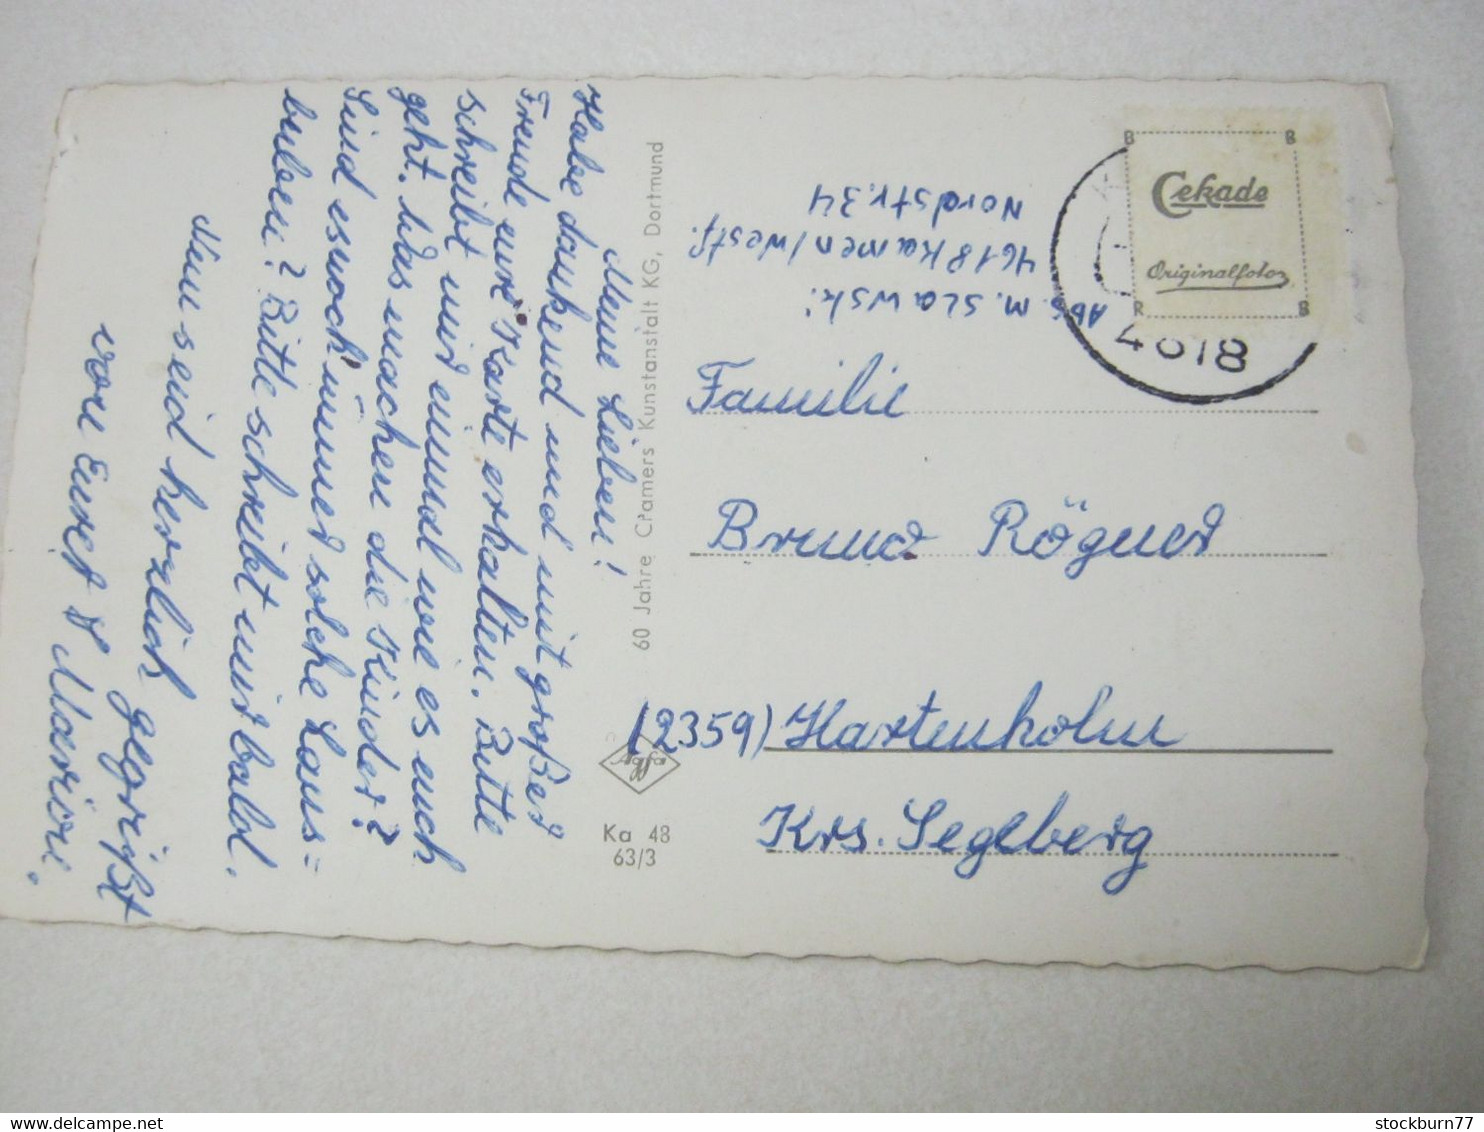 Meine Lieben!
Habe dankend und mit großer
Freude eure Karte erhalten. Bitte
schreibt mir einmal wie es euch
geht. Was machen die Kinder?
Sind es noch immer solche Laus=
buben? Bitte schreibt mir bald.
Nun seid herzlich gegrüßt
von Eurer
60 Jahre Cramers Kunstanstalt KG, Dortmund
Agfa
Ka 48
63/3
Abs. M. Slawski
4618 Kamen/Westf.
Nordstr. 34
B B
Cekade
Originalfoto
R B
4618
Familie
Bruno Rögner
(2359) Hartenholm
Krs. Segeberg
stockburn77